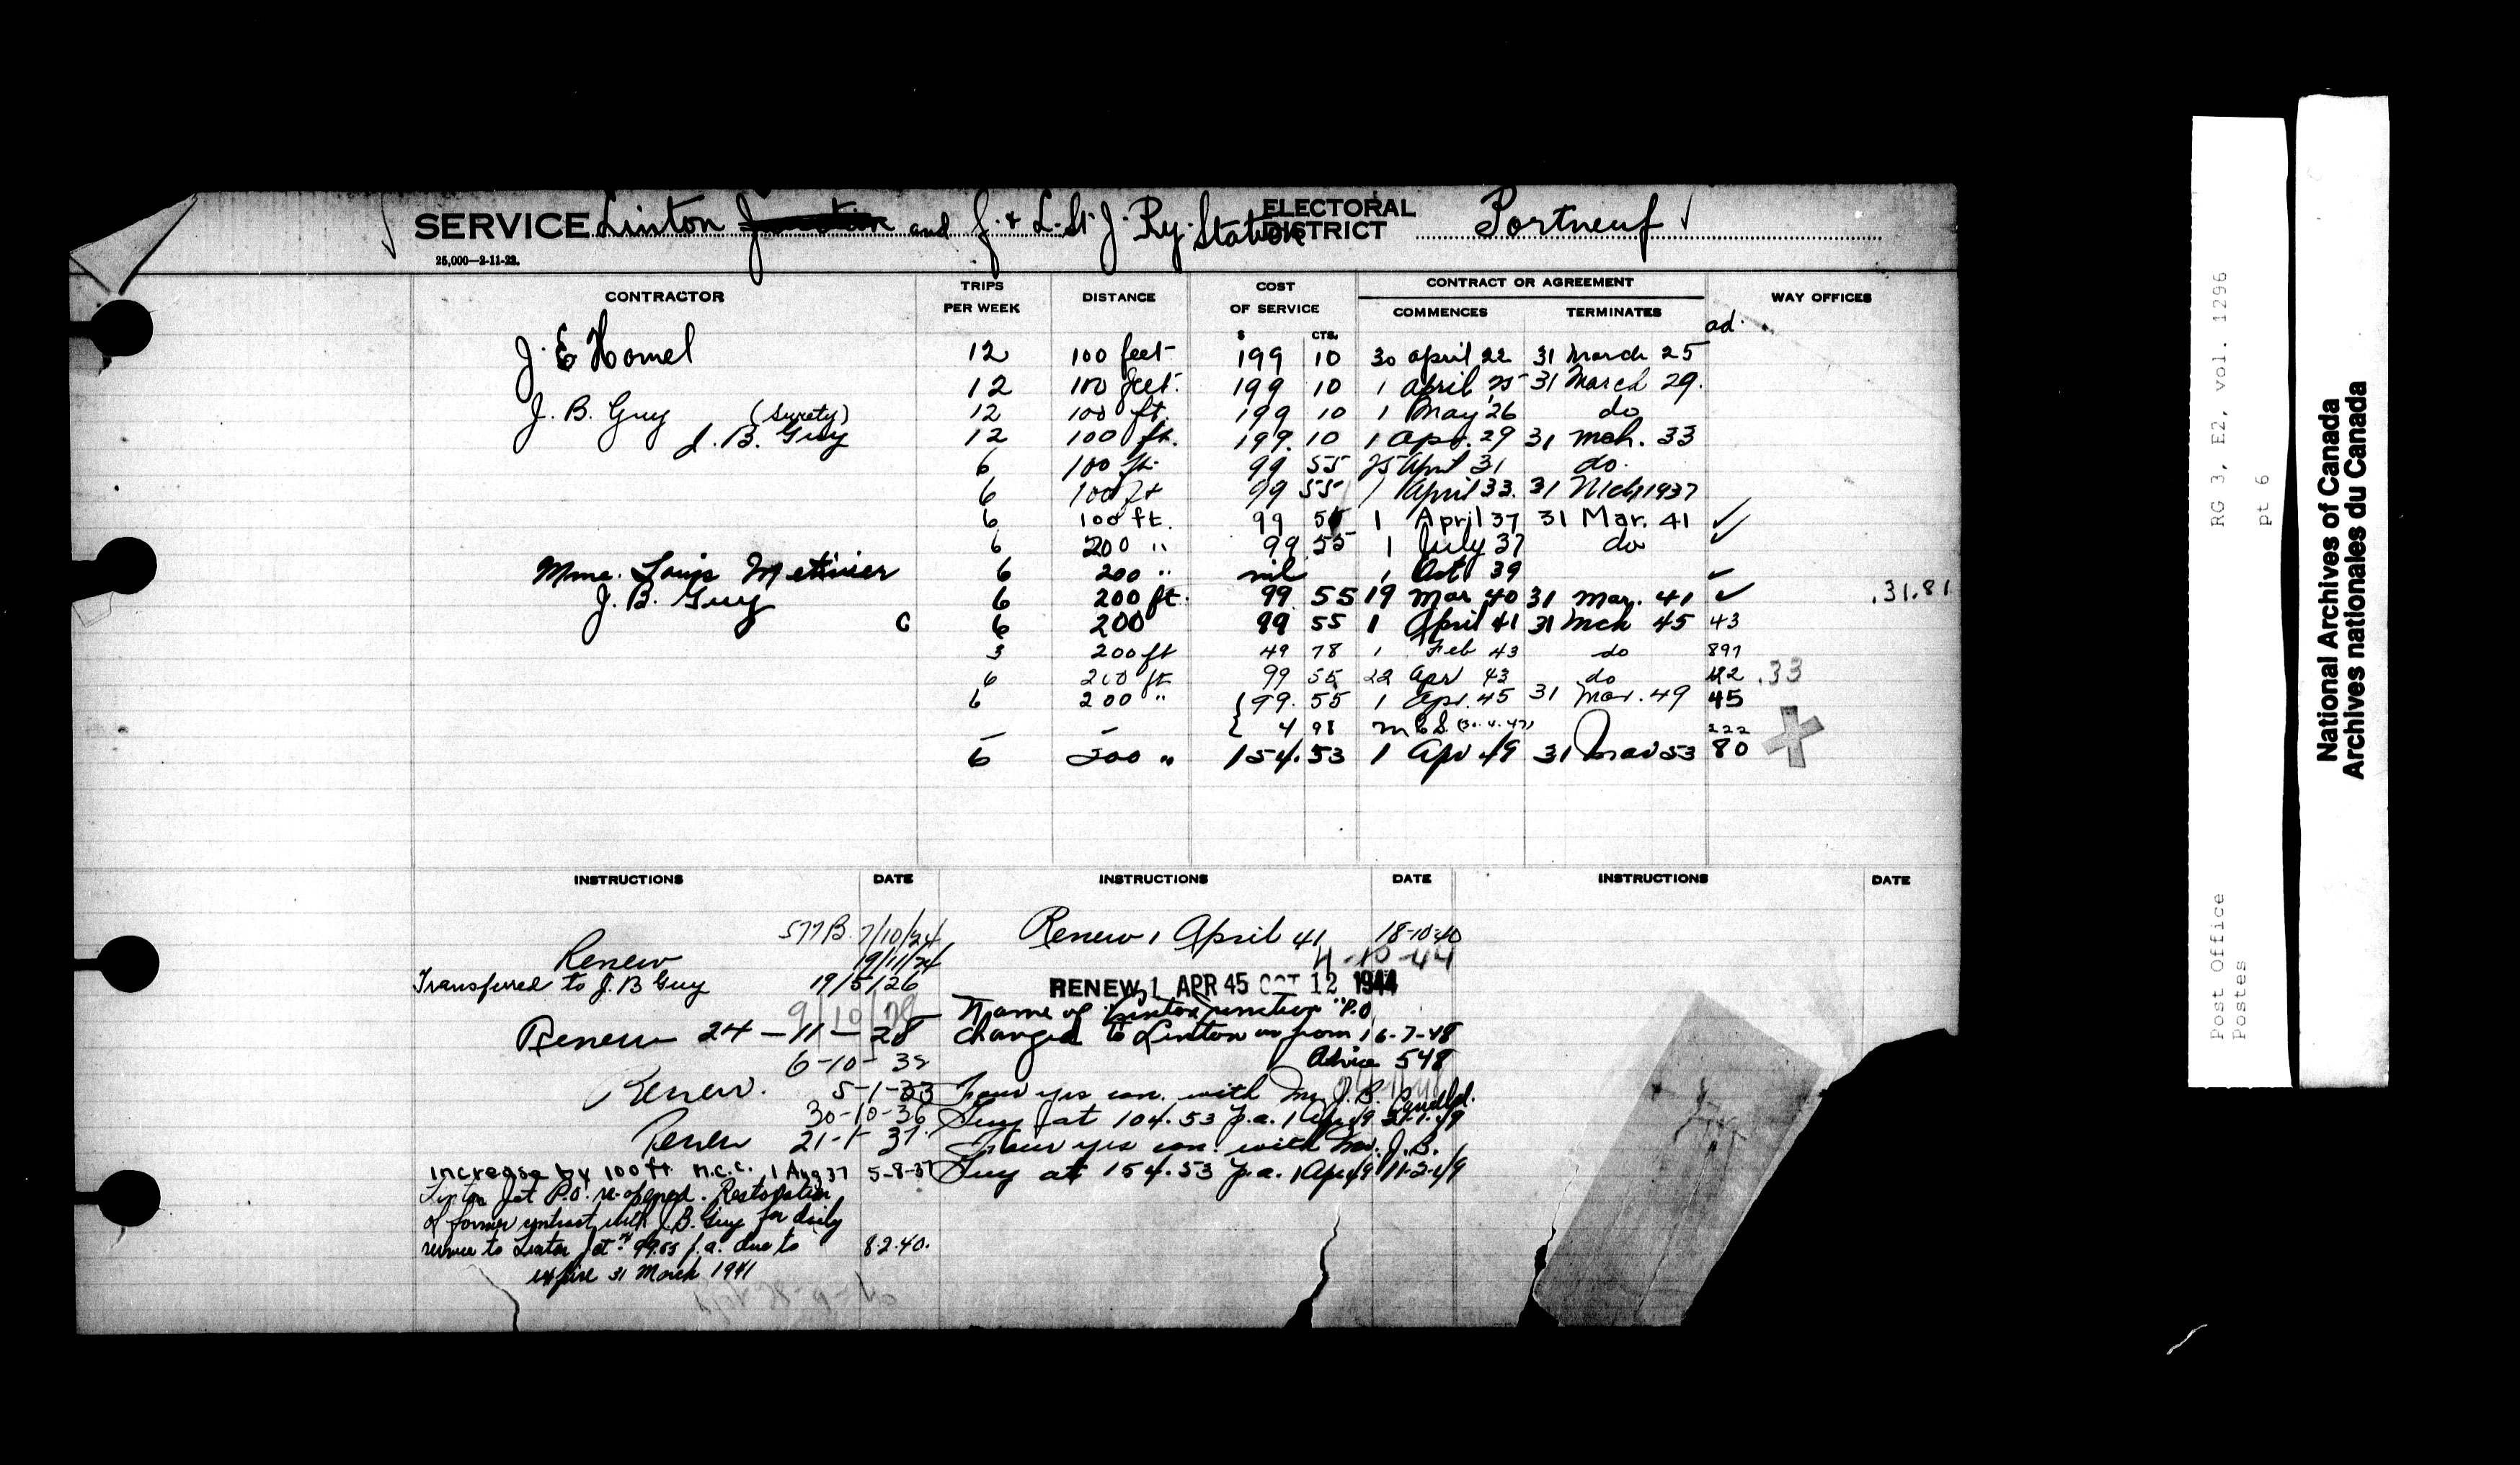 SERVICE Linton Junction and J. & L. St. J. Ry. Station ELECTORAL DISTRICT Portneuf
25,000—2-11-22.
CONTRACTOR TRIPS PER WEEK DISTANCE COST OF SERVICE CONTRACT OR AGREEMENT WAY OFFICES
$ CTS. COMMENCES TERMINATES
ad.
J. E Hamel 12 100 feet 199 10 30 april 22 31 March 25
12 100 feet. 199 10 1 april 25 31 March 29.
J. B. Guy (Surety) 12 100 ft. 199 10 1 May 26 do
J. B. Guy 12 100 ft. 199. 10 1 apr. 29 31 Mch. 33
6 100 ft. 99 55 25 April 31 do.
6 100 ft 99 55 1 April 33. 31 Mch 1937
6 100 ft. 99 55 1 April 37 31 Mar. 41
6 200 " 99 55 1 July 37 do
Mme. Louis Metivier 6 200 " nil 1 Oct 39
J. B. Guy 6 200 ft. 99 55 19 Mar 40 31 Mar. 41 .31.81
C 6 200 99 55 1 April 41 31 Mch 45 43
3 200 ft 49 78 1 Feb 43 do 897
6 200 ft 99 55 22 Apr 43 do .33
6 200 " 99. 55 1 Apr. 45 31 Mar. 49 45
— — 4 98 222
6 200 " 154.53 1 Apr 49 31 Mar 53 80
INSTRUCTIONS DATE INSTRUCTIONS DATE INSTRUCTIONS DATE
577B. 7/10/24
Renew 19/11/24
Transferred to J. B Guy 19/5/26
9/10/28
Renew 24 — 11 — 28
6-10-32
Renew. 5-1-33
30-10-36
Renew 21-1-37.
Increase by 100 ft N.C.C. 1 Aug 37 5-8-37
Linton Jct P.O. re-opened. Restoration
of former contract with J.B. Guy for daily
service to Linton Jct @ 99.55 p.a. due to 8.2.40.
expire 31 March 1941
Renew 1 April 41 18-10-40
4-10-44
RENEW 1 APR 45 OCT 12 1944
Name of "Linton Junction" P.O
changed to Linton as from 16-7-48
Advice 548
Four yrs con. with Mr. J. B. Cancelled.
Guy at 104.53 p.a. 1 Apr 49
Four yrs con. with Mr. J. B.
Guy at 154.53 p.a. 1 Apr 49 11-2-49
Post Office RG 3, E2, vol. 1296
Postes pt 6
National Archives of Canada
Archives nationales du Canada